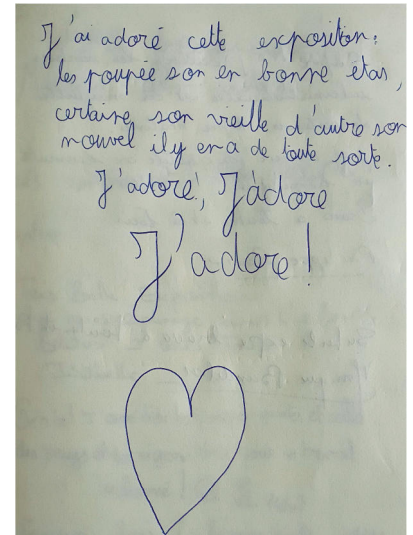 J'ai adoré cette exposition :
les poupée son en bonne état,
certaine son vieille d'autre son
nouvel il y en a de toute sorte.
J'adore!, J'adore
J'adore!